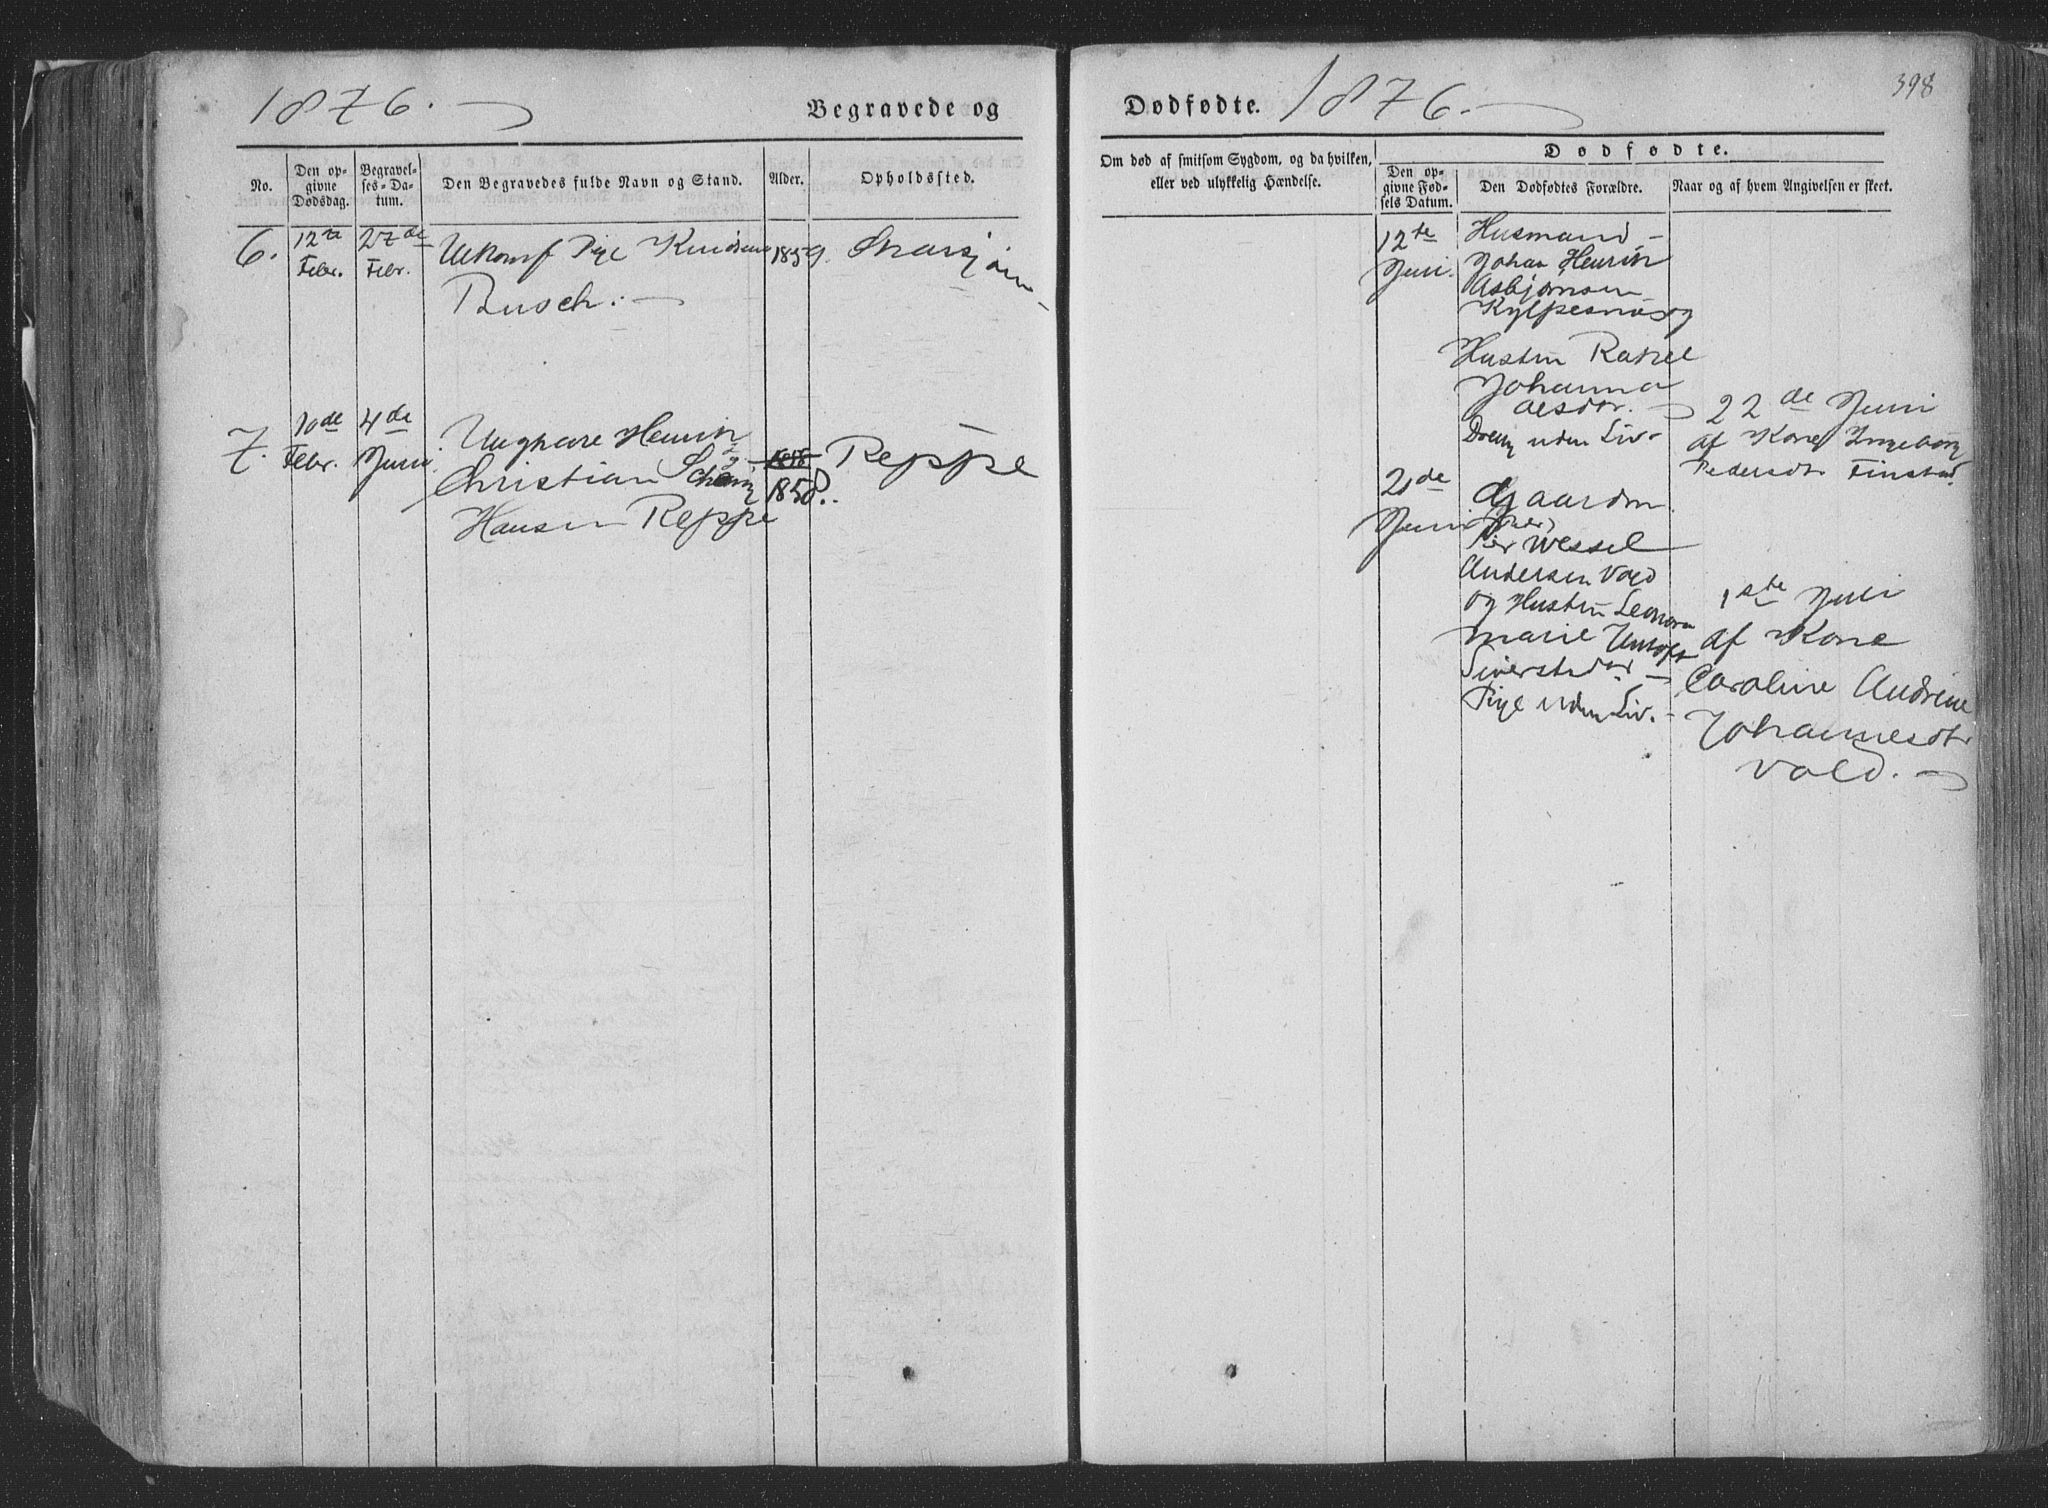 1876.
Begravede og
No.
Den opgivne Dødsdag.
Begravelses-Datum.
Den Begravedes fulde Navn og Stand.
Alder.
Opholdssted.
6.
12te Febr.
27de Febr.
Ukonf Pige
Busch.
1859.
7.
10de Febr.
4de Juni
Ungkare Henrik
Christian
Hansen Reppe
1858.
Reppe
Dødfødte.
1876.
398
Om død af smitsom Sygdom, og da hvilken,
eller ved ulykkelig Hændelse.
Dødfødte.
Den opgivne Fødsels Datum.
Den Dødfødtes Forældre.
Naar og af hvem Angivelsen er skeet.
12te
Juni.
Husmand
Johan Henrik
Asbjørnsen
Kylpesnæs og
Hustru Rakel
Johanna
Olsdtr.
Dreng uden Liv.
22de Juni
af Kone Ingeborg
Pedersdtr Finstad.
20de
Juni
Gaardm.
Per Wessel
Andersen Vold
og Hustru Leonora
Marie
Sivertsdtr
Pige uden Liv.
1ste Juli
af Kone
Caroline Andrine
Johannesdtr
Vold.